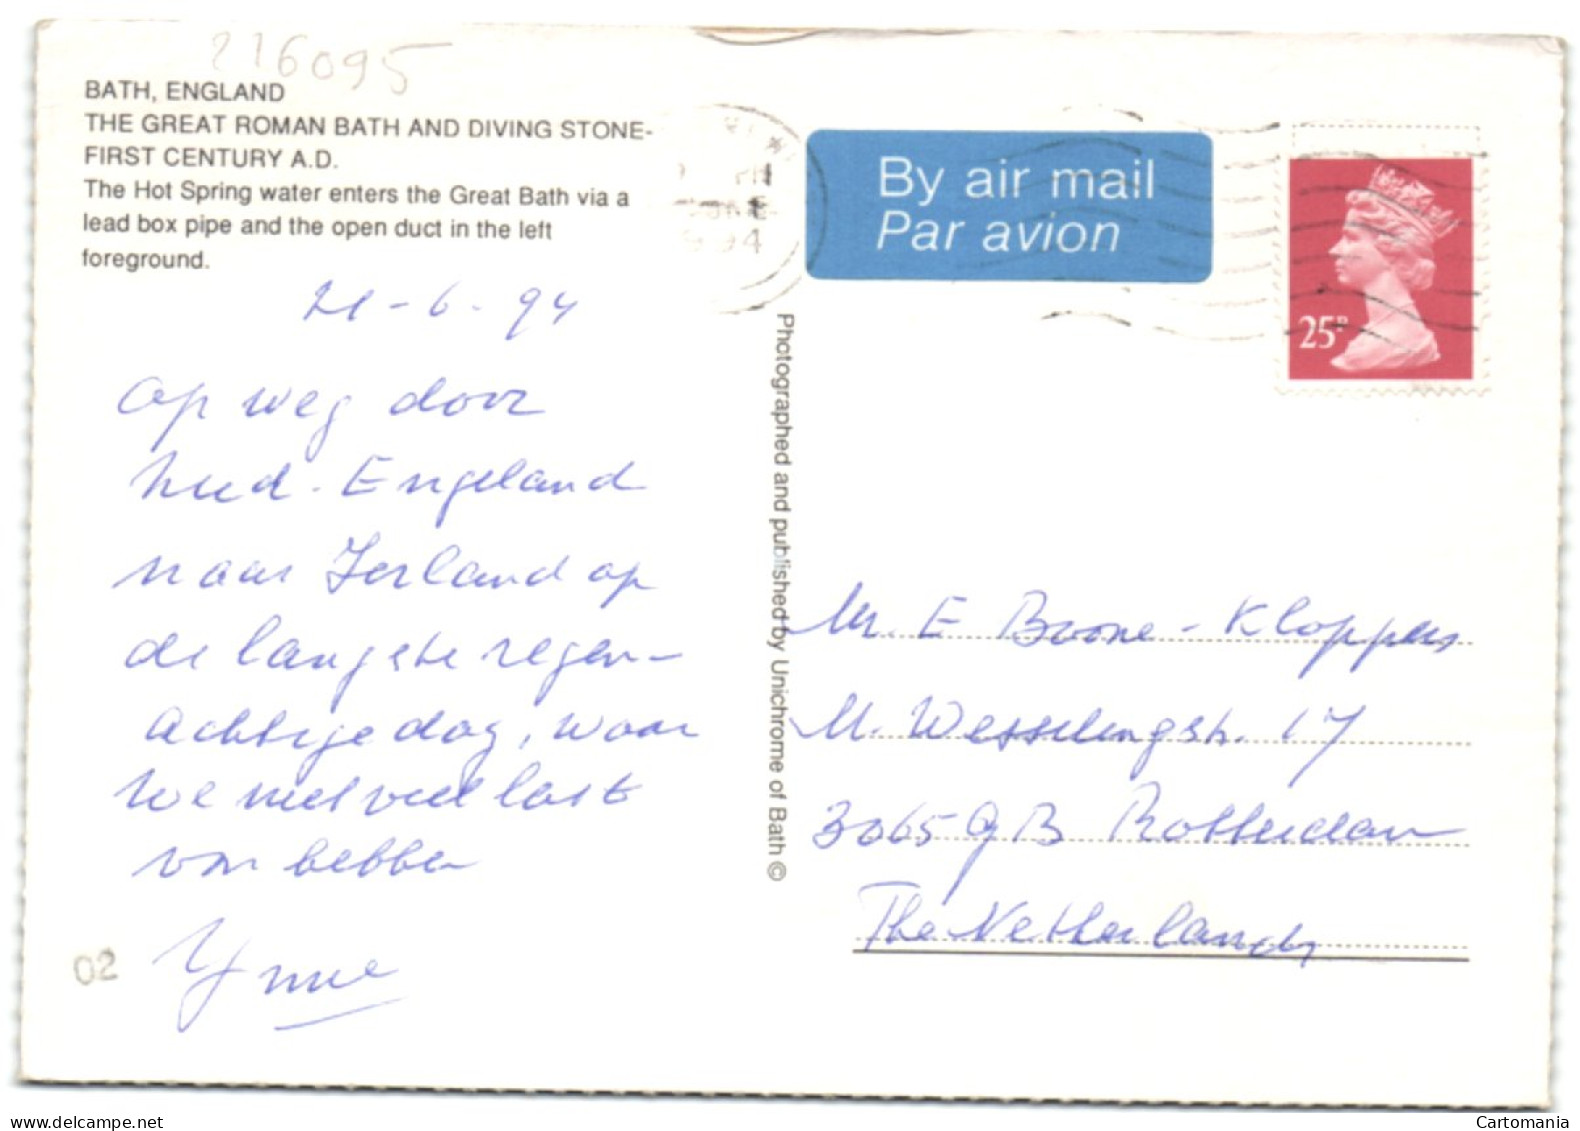 216095
BATH, ENGLAND
THE GREAT ROMAN BATH AND DIVING STONE-
FIRST CENTURY A.D.
The Hot Spring water enters the Great Bath via a
lead box pipe and the open duct in the left
foreground.
21-6-94
Op weg door
Engeland
naar Ierland op
de langste regen-
achtige dag, waar
we niet veel last
van hebben
02
Photographed and published by Unichrome of Bath ©
By air mail
Par avion
25P
94
E Boone-Kloppers
M. Wesselingstr. 17
3065 GB Rotterdam
The Netherlands
Cartomania